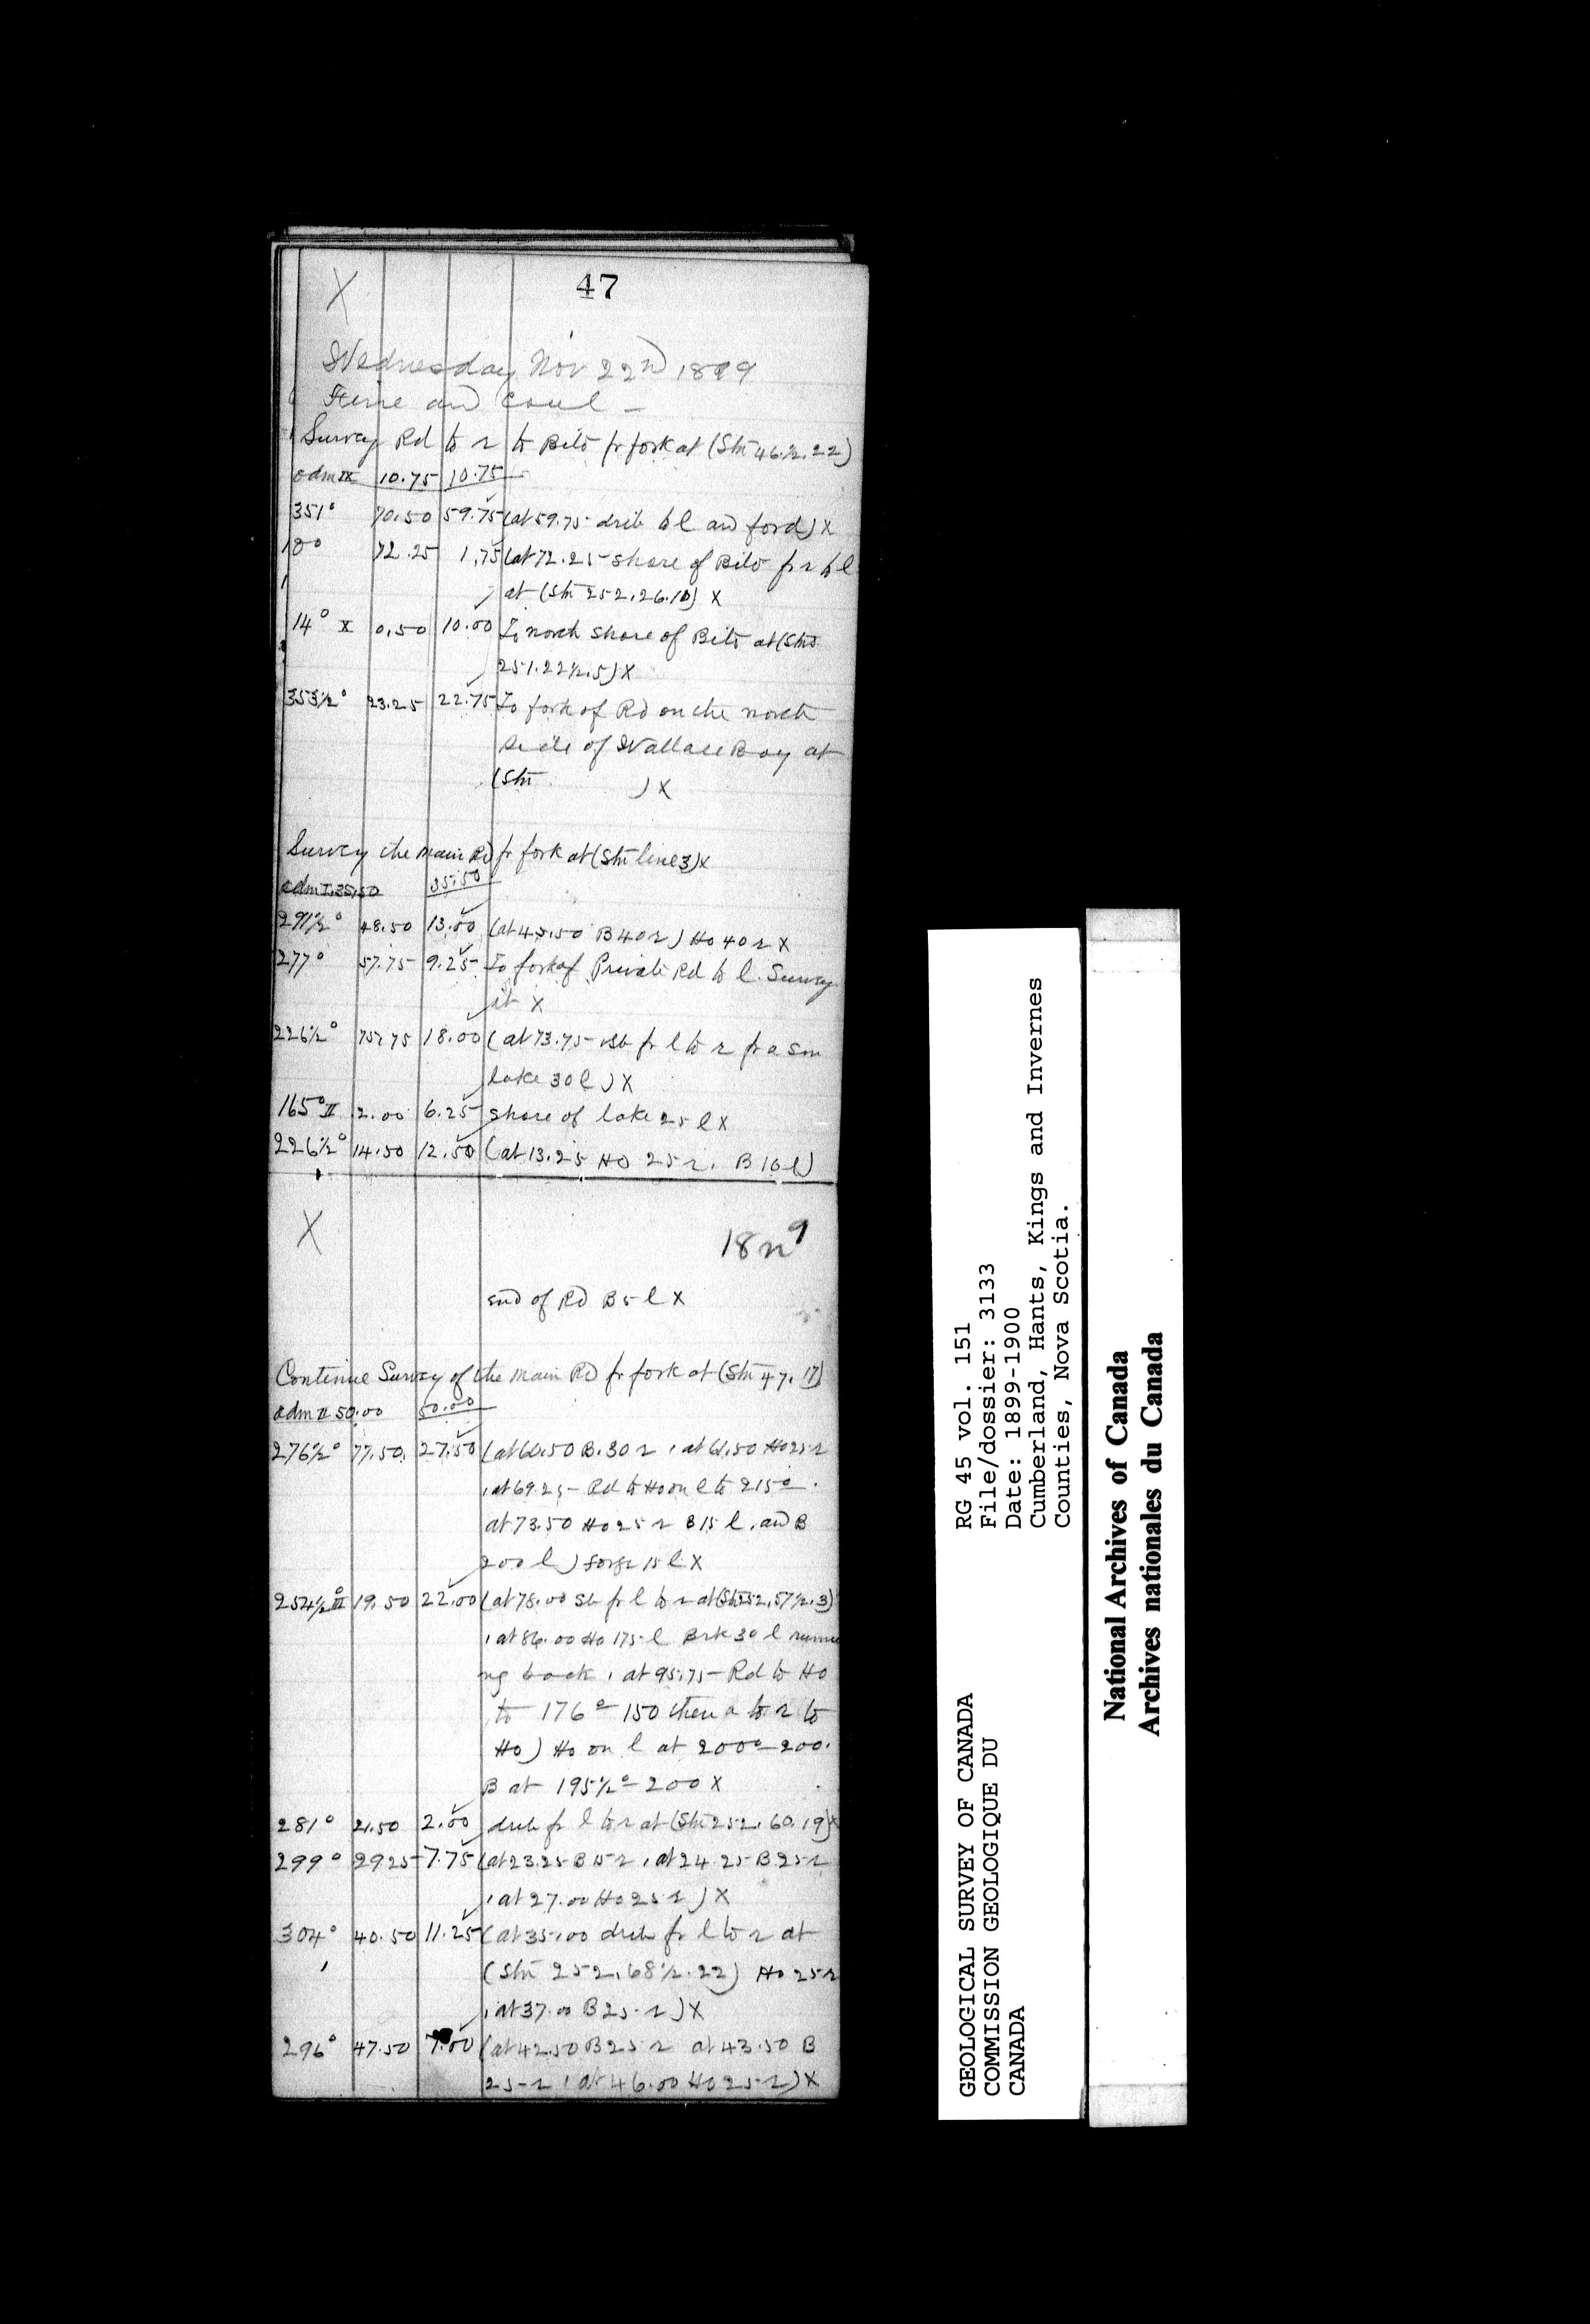 X
47
Wednesday Nov 22nd 1899
Fine and Cool –
Survey Rd to r to Bilo fr fork at (Stn 46½.22)
odm IX 10.75 10.75
351° 70.50 59.75 (at 59.75 drib to l and ford) X
18° 72.25 1.75 (at 72.25 shore of Bilo fr r to l
at (Stn 252.26.10) X
14° X 0.50 10.00 To north shore of Bilo at (Stn
251.22½.5) X
353½° 23.25 22.75 To fork of Rd on the north
side of Wallace Bay at
(Stn ) X
Survey the main Rd fr fork at (Stn line 3) X
odm I.35.50 35.50
291½° 48.50 13.00 (at 45.50 B 40 r) Ho 40 r X
277° 57.75 9.25 To fork of Private Rd to l. Survey
it X
226½° 75.75 18.00 (at 73.75 vsb fr l to r fr a sm
lake 30 l) X
165° II 2.00 6.25 shore of lake 25 l X
226½° 14.50 12.50 (at 13.25 Ho 25 r. B 10 l)
X
18 n 9
End of Rd B 5 l X
Continue Survey of the main Rd fr fork at (Stn 47.17)
odm II 50.00 50.00
276½° 77.50 27.50 (at 60.50 B.30 r, at 61.50 Ho 25 r
, at 69.25 – Rd to Ho on l to 215°.
at 73.50 Ho 25 r B 15 l, and B
200 l) forge 15 l X
254½° III 19.50 22.00 (at 78.00 sb fr l to r at (Stn 252,57½.3)
, at 86.00 Ho 175 l Brk 30 l runni
ng back, at 95.75 – Rd to Ho
to 176° – 150 then a to r to
Ho) Ho on l at 200° – 200.
B at 195½° – 200 X
281° 21.50 2.00 drib fr l to r at (Stn 252.60.19) X
299° 29.25 7.75 (at 23.25 B 15 r, at 24.25 B 25 r
, at 27.00 Ho 25 r) X
304° 40.50 11.25 (at 35.00 drib fr l to r at
(Stn 252.68½.22) Ho 25 r
, at 37.00 B 25 r) X
296° 47.50 7.00 (at 42.50 B 25 r at 43.50 B
25 r, at 46.00 Ho 25 r) X
GEOLOGICAL SURVEY OF CANADA
COMMISSION GEOLOGIQUE DU
CANADA
RG 45 vol. 151
File/dossier: 3133
Date: 1899-1900
Cumberland, Hants, Kings and Invernes
Counties, Nova Scotia.
National Archives of Canada
Archives nationales du Canada